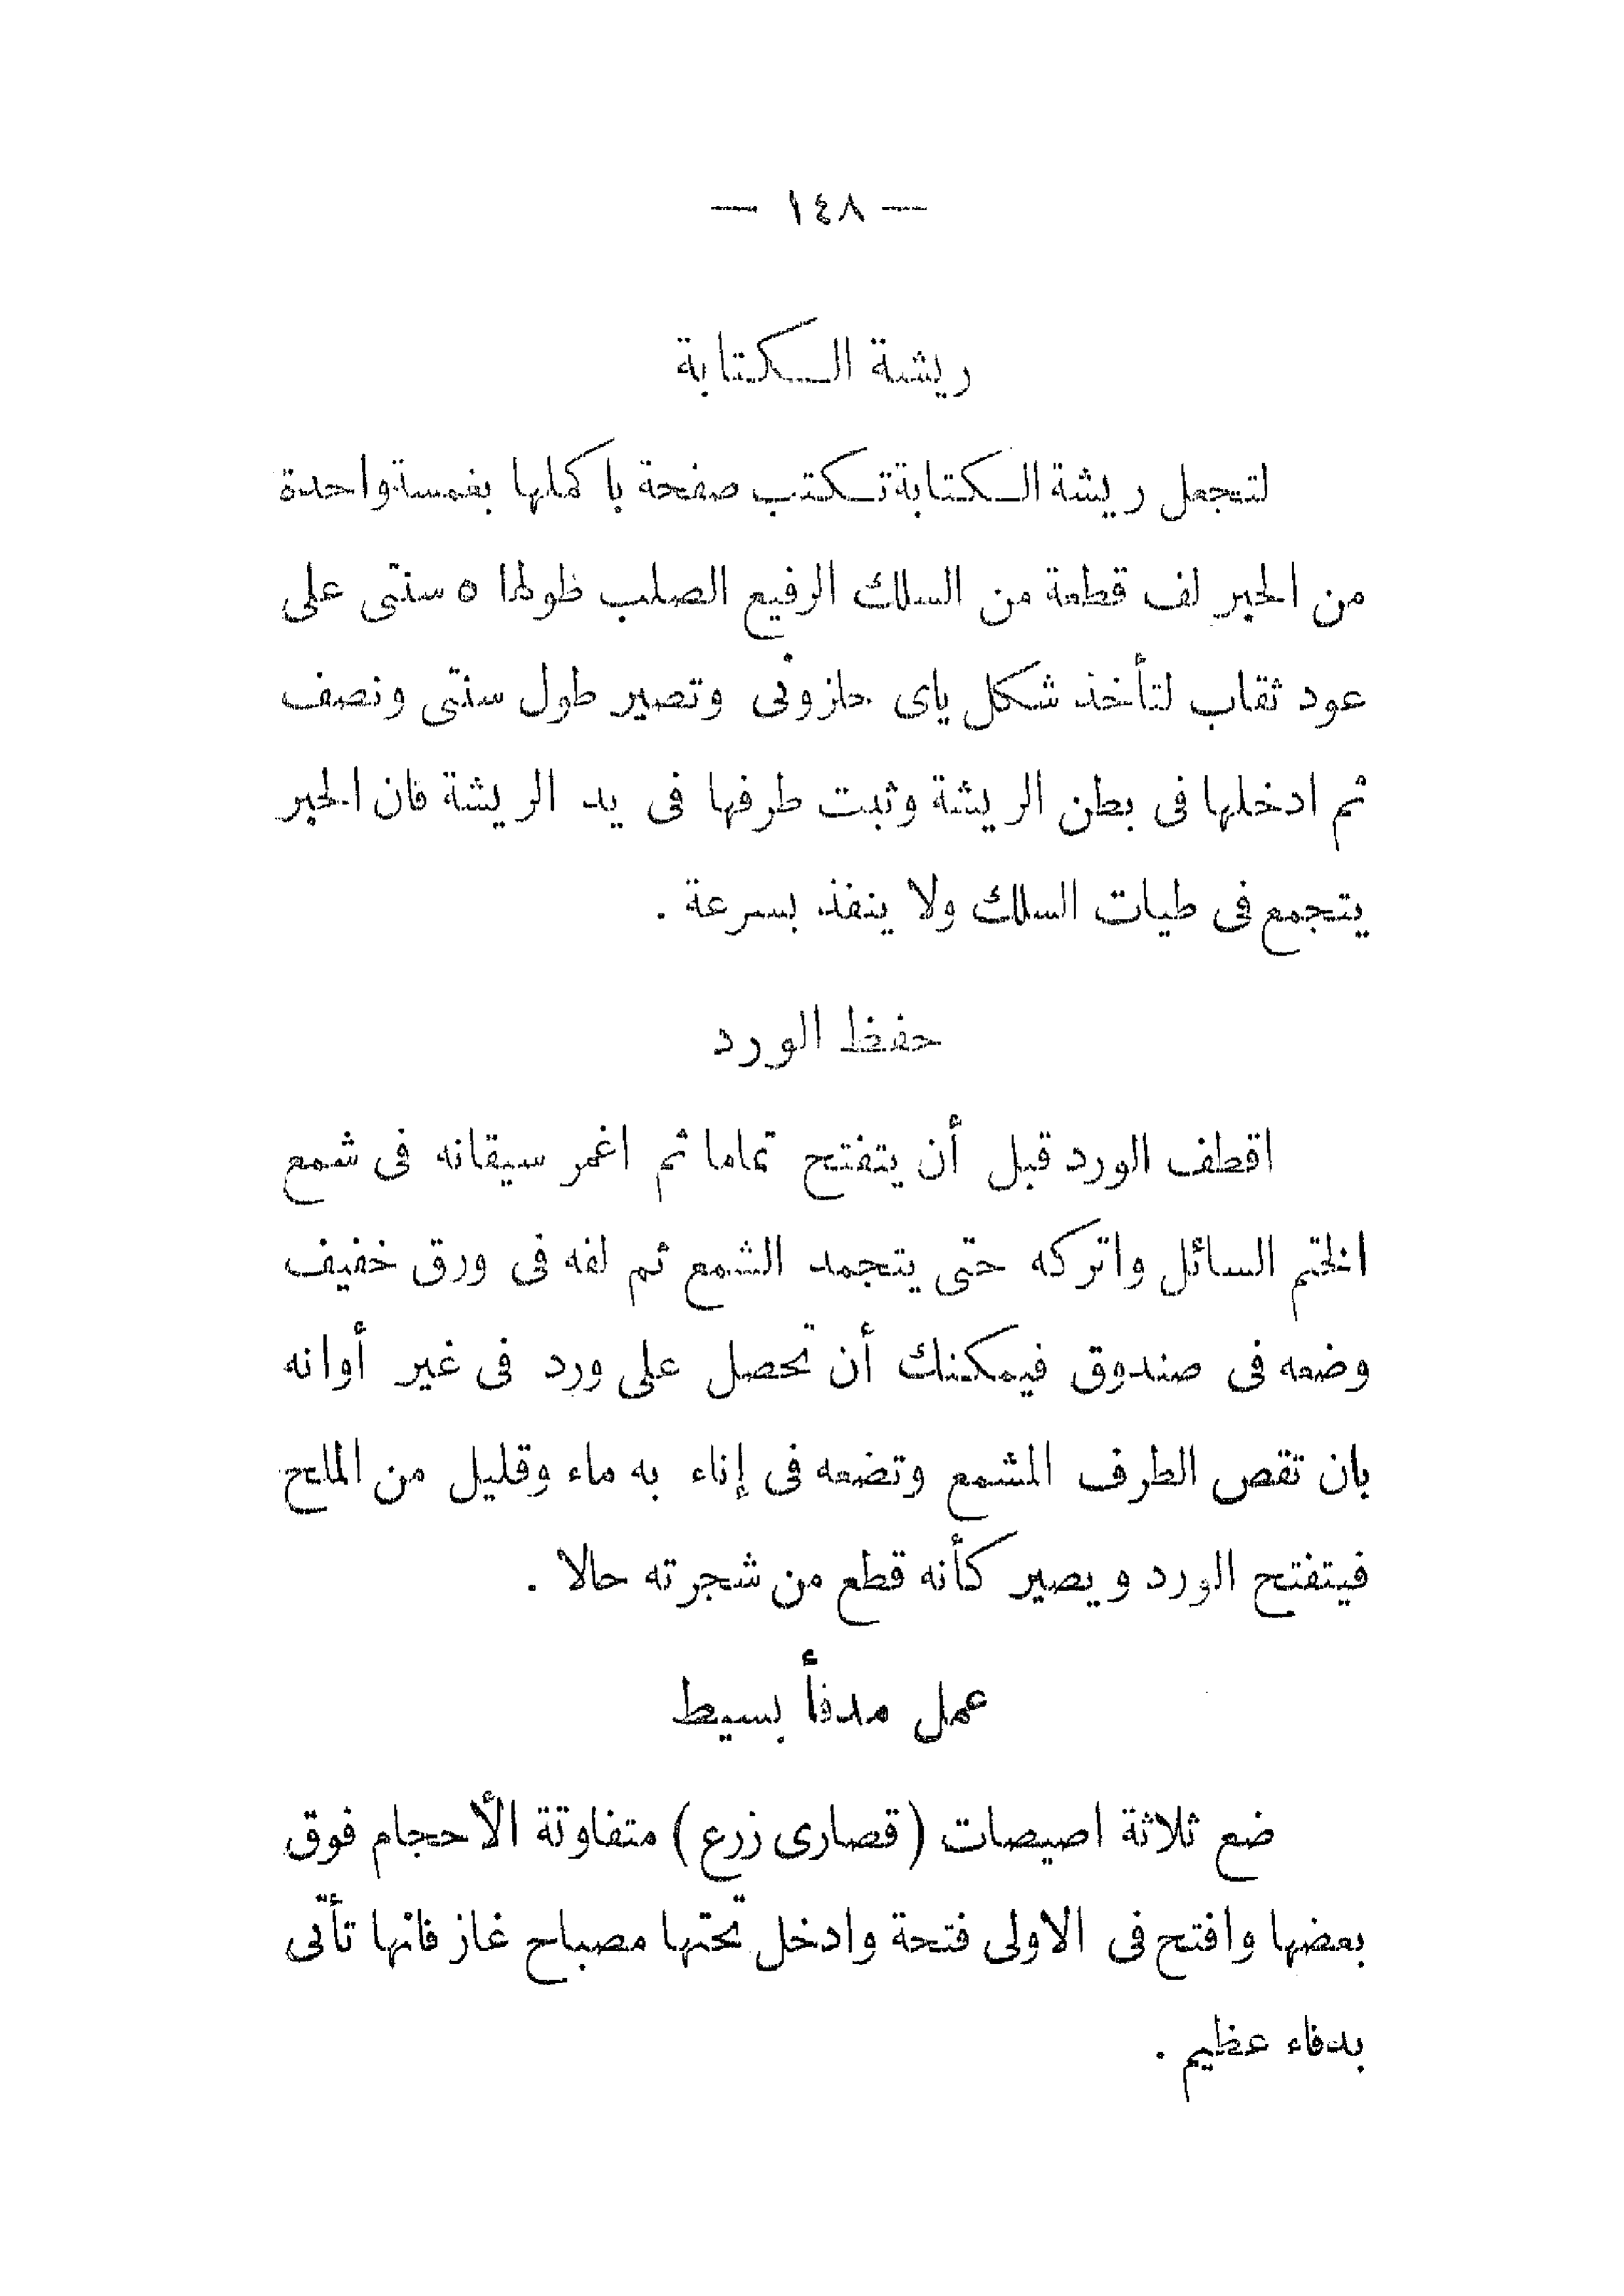 — ١٤٨ —
ريشة الكتابة
لتجعل ريشة الكتابة تكتب صفحة باكملها بغمسة واحدة
من الحبر لف قطعة من السلك الرفيع الصلب طولها ٥ سنتى على
عود ثقاب لتأخذ شكل ياى حلزونى وتصير طول سنتى ونصف
ثم ادخلها فى بطن الريشة وثبت طرفها فى يد الريشة فان الحبر
يتجمع فى طيات السلك ولا ينفذ بسرعة .
حفظ الورد
اقطف الورد قبل أن يتفتح تماما ثم اغمر سيقانه فى شمع
الختم السائل واتركه حتى يتجمد الشمع ثم لفه فى ورق خفيف
وضعه فى صندوق فيمكنك أن تحصل على ورد فى غير أوانه
بان تقص الطرف المشمع وتضعه فى إناء به ماء وقليل من الملح
فيتفتح الورد ويصير كأنه قطع من شجرته حالا .
عمل مدفأ بسيط
ضع ثلاثة اصيصات (قصارى زرع) متفاوتة الأحجام فوق
بعضها وافتح فى الاولى فتحة وادخل تحتها مصباح غاز فانها تأتى
بدفاء عظيم .